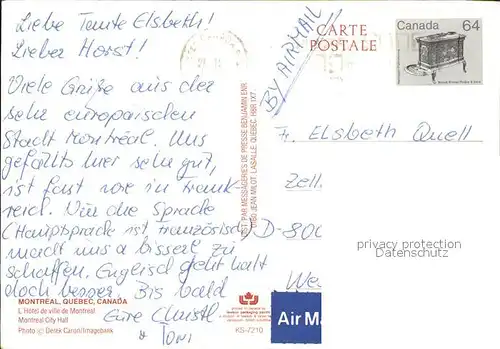 Liebe Tante Elsbeth!
Lieber Horst!
Viele Grüße aus der
sehr europäischen
Stadt Montréal. Uns
gefällts hier sehr gut,
ist fast wie in Frank-
reich. Nur die Sprache
(Hauptsprache ist französisch)
macht uns a bisserl zu
schaffen, Englisch geht halt
doch besser. Bis bald
Eure Christl
+ Toni
MONTRÉAL, QUÉBEC, CANADA
L'Hôtel de ville de Montréal
Montreal City Hall
Photo © Derek Caron/Imagebank
KS-7210
EST. PAR MESSAGERIES DE PRESSE BENJAMIN ENR
9160 JEAN MILOT, LASALLE, QUEBEC H8R 1X7
BY AIRMAIL
CARTE
POSTALE
Canada 64
Fr. Elsbeth Quell
Zell.
D-800
We
privacy protection
Datenschutz
Air M